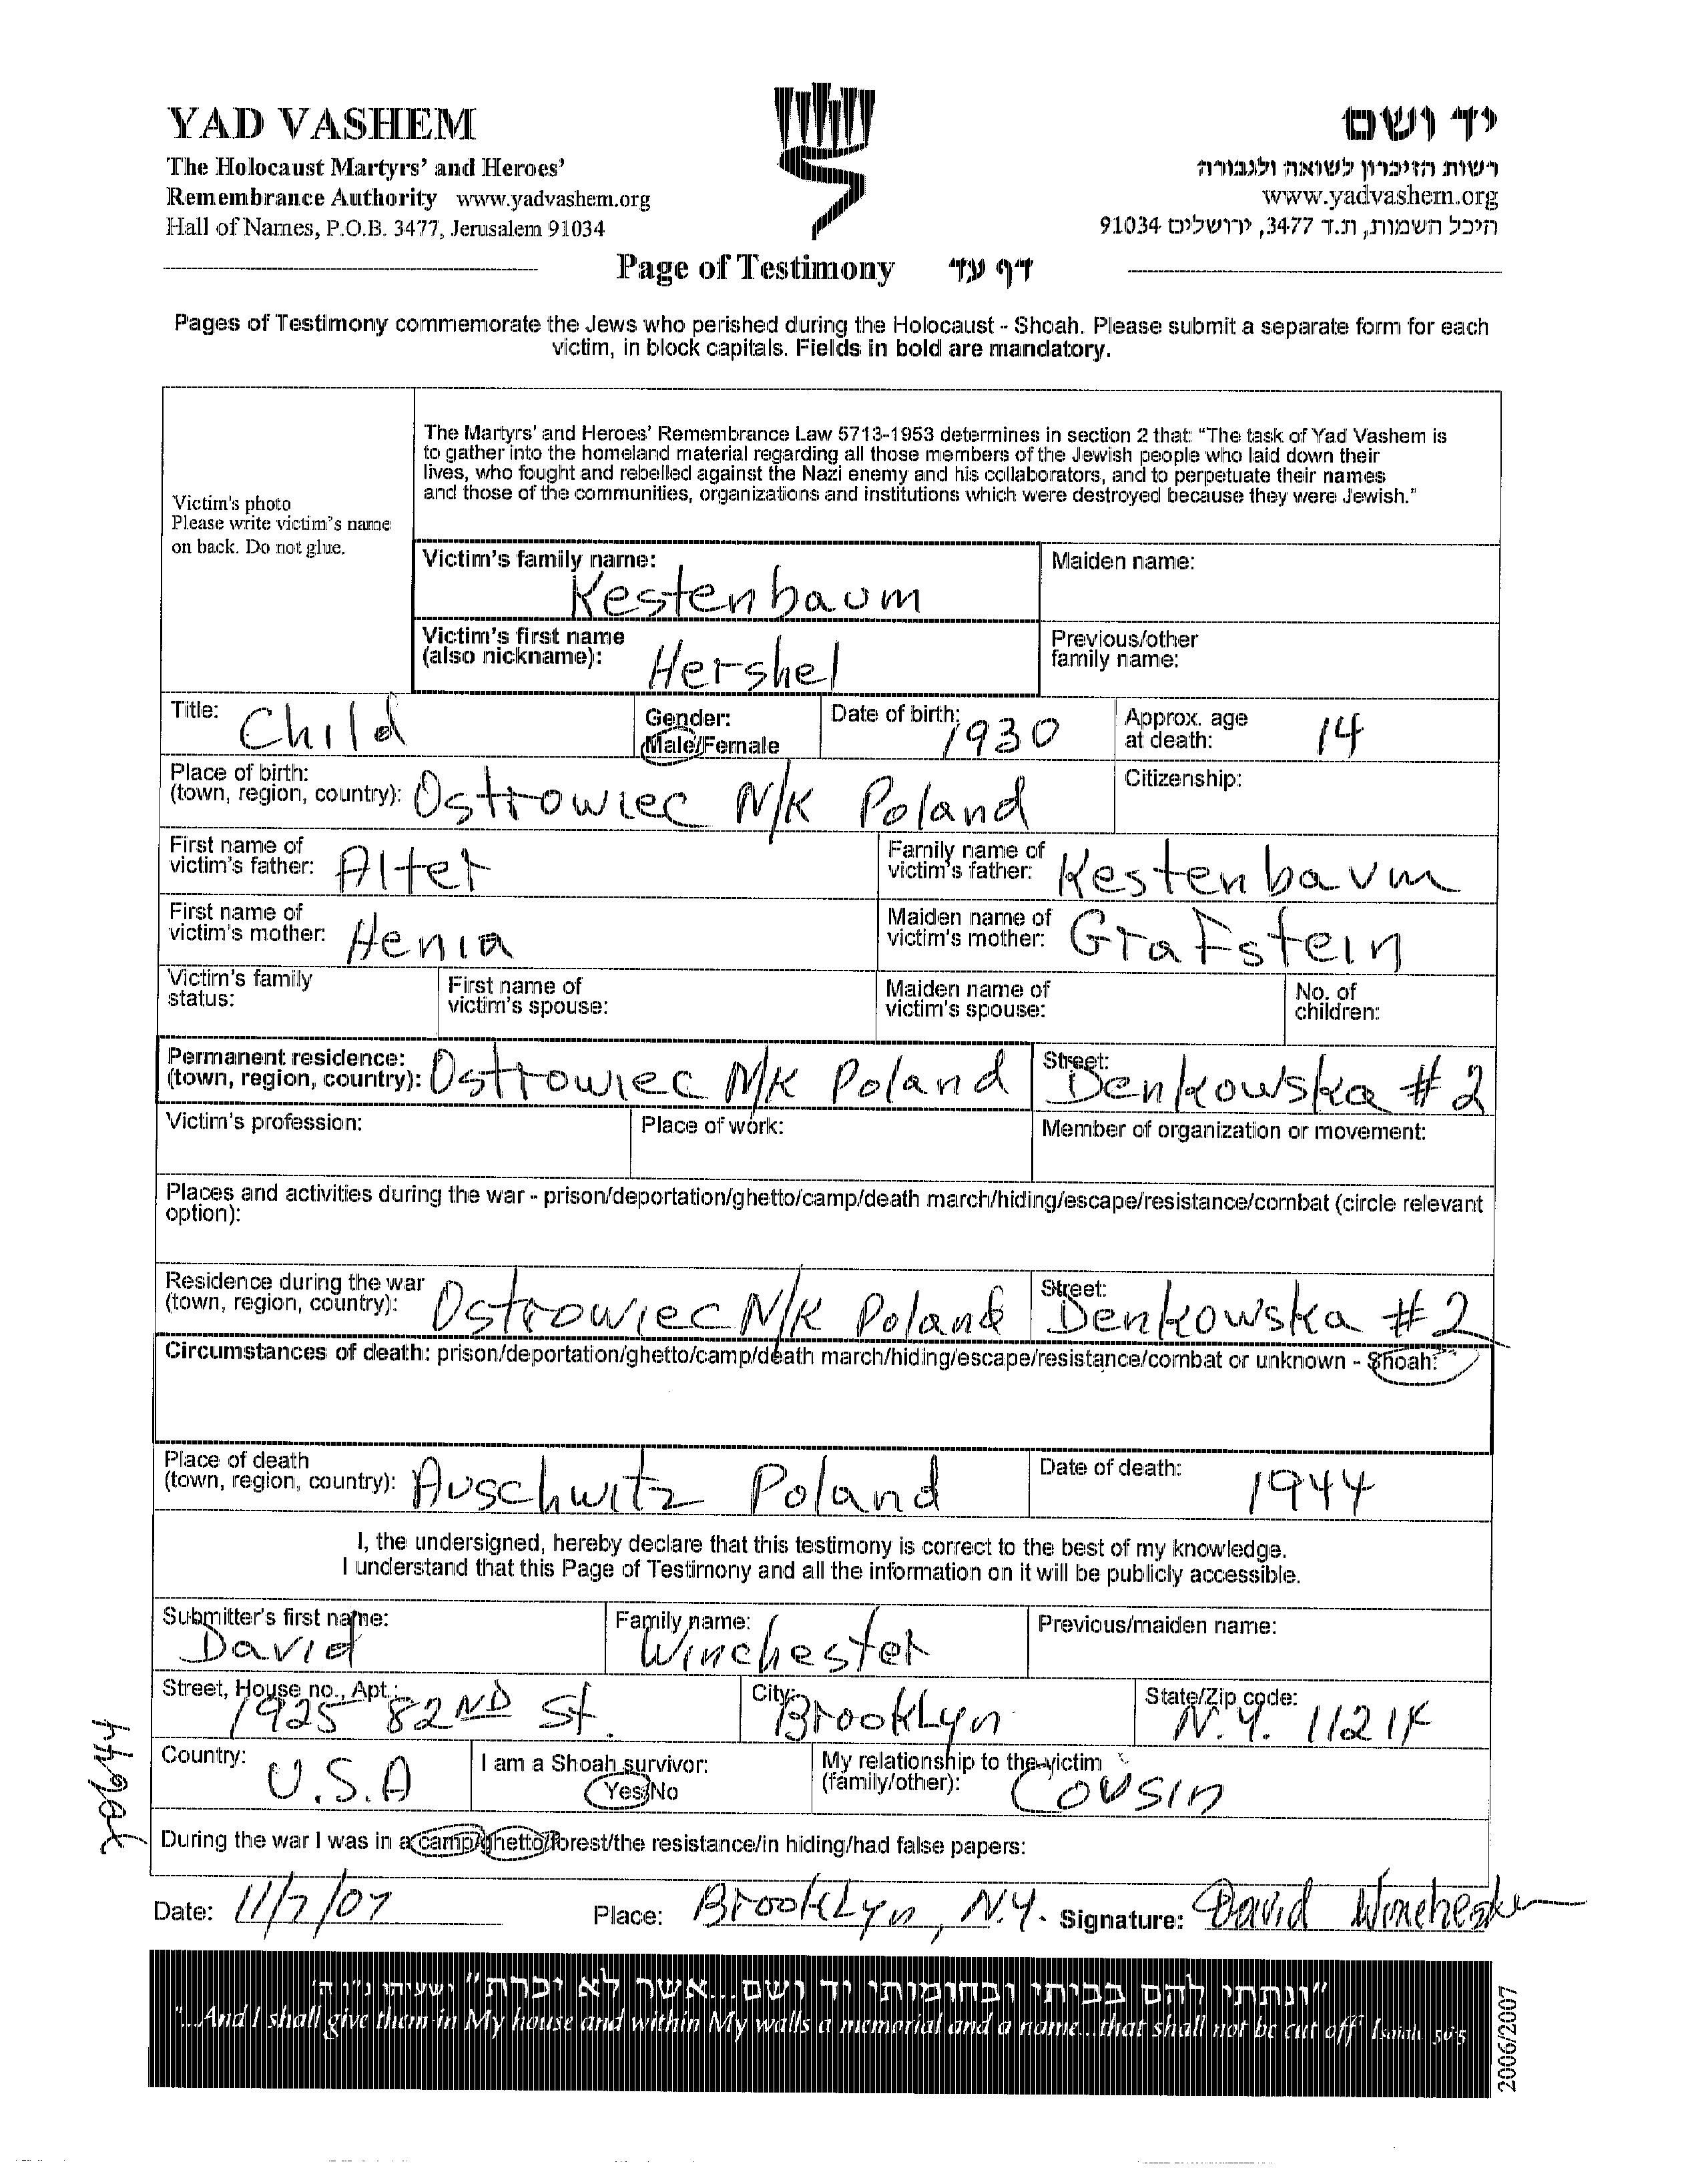 YAD VASHEM
The Holocaust Martyrs' and Heroes'
Remembrance Authority www.yadvashem.org
Hall of Names, P.O.B. 3477, Jerusalem 91034
יד ושם
רשות הזיכרון לשואה ולגבורה
www.yadvashem.org
היכל השמות, ת.ד 3477, ירושלים 91034
Page of Testimony דף עד
Pages of Testimony commemorate the Jews who perished during the Holocaust - Shoah. Please submit a separate form for each
victim, in block capitals. Fields in bold are mandatory.
Victim's photo
Please write victim's name
on back. Do not glue.
The Martyrs' and Heroes' Remembrance Law 5713-1953 determines in section 2 that: "The task of Yad Vashem is
to gather into the homeland material regarding all those members of the Jewish people who laid down their
lives, who fought and rebelled against the Nazi enemy and his collaborators, and to perpetuate their names
and those of the communities, organizations and institutions which were destroyed because they were Jewish."
Victim's family name:
Kestenbaum
Maiden name:
Victim's first name
(also nickname): Hershel
Previous/other
family name:
Title: Child
Gender:
Male/Female
Date of birth: 1930
Approx. age
at death: 14
Place of birth:
(town, region, country): Ostrowiec N/K Poland
Citizenship:
First name of
victim's father: Alter
Family name of
victim's father: Kestenbaum
First name of
victim's mother: Henia
Maiden name of
victim's mother: Grafstein
Victim's family
status:
First name of
victim's spouse:
Maiden name of
victim's spouse:
No. of
children:
Permanent residence:
(town, region, country): Ostrowiec N/K Poland
Street: Denkowska #2
Victim's profession:
Place of work:
Member of organization or movement:
Places and activities during the war - prison/deportation/ghetto/camp/death march/hiding/escape/resistance/combat (circle relevant
option):
Residence during the war
(town, region, country): Ostrowiec N/K Poland
Street: Denkowska #2
Circumstances of death: prison/deportation/ghetto/camp/death march/hiding/escape/resistance/combat or unknown - Shoah:
Place of death
(town, region, country): Auschwitz Poland
Date of death: 1944
I, the undersigned, hereby declare that this testimony is correct to the best of my knowledge.
I understand that this Page of Testimony and all the information on it will be publicly accessible.
Submitter's first name:
David
Family name:
Winchester
Previous/maiden name:
Street, House no., Apt.:
1925 82ND St.
City:
Brooklyn
State/Zip code:
N.Y. 11214
Country: U.S.A
I am a Shoah survivor:
Yes/No
My relationship to the victim
(family/other): Cousin
During the war I was in a camp/ghetto/forest/the resistance/in hiding/had false papers:
Date: 11/7/07 Place: Brooklyn, N.Y. Signature: David Winchester
20644
"ונתתי להם בביתי ובחומותי יד ושם...אשר לא יכרת" ישעיהו נ"ו ה'
"...And I shall give them in My house and within My walls a memorial and a name...that shall not be cut off" Isaiah 56:5
2006/2007